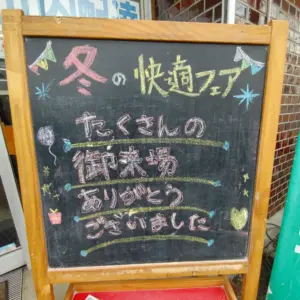 冬の快適フェア
たくさんの
御来場
ありがとう
ございました